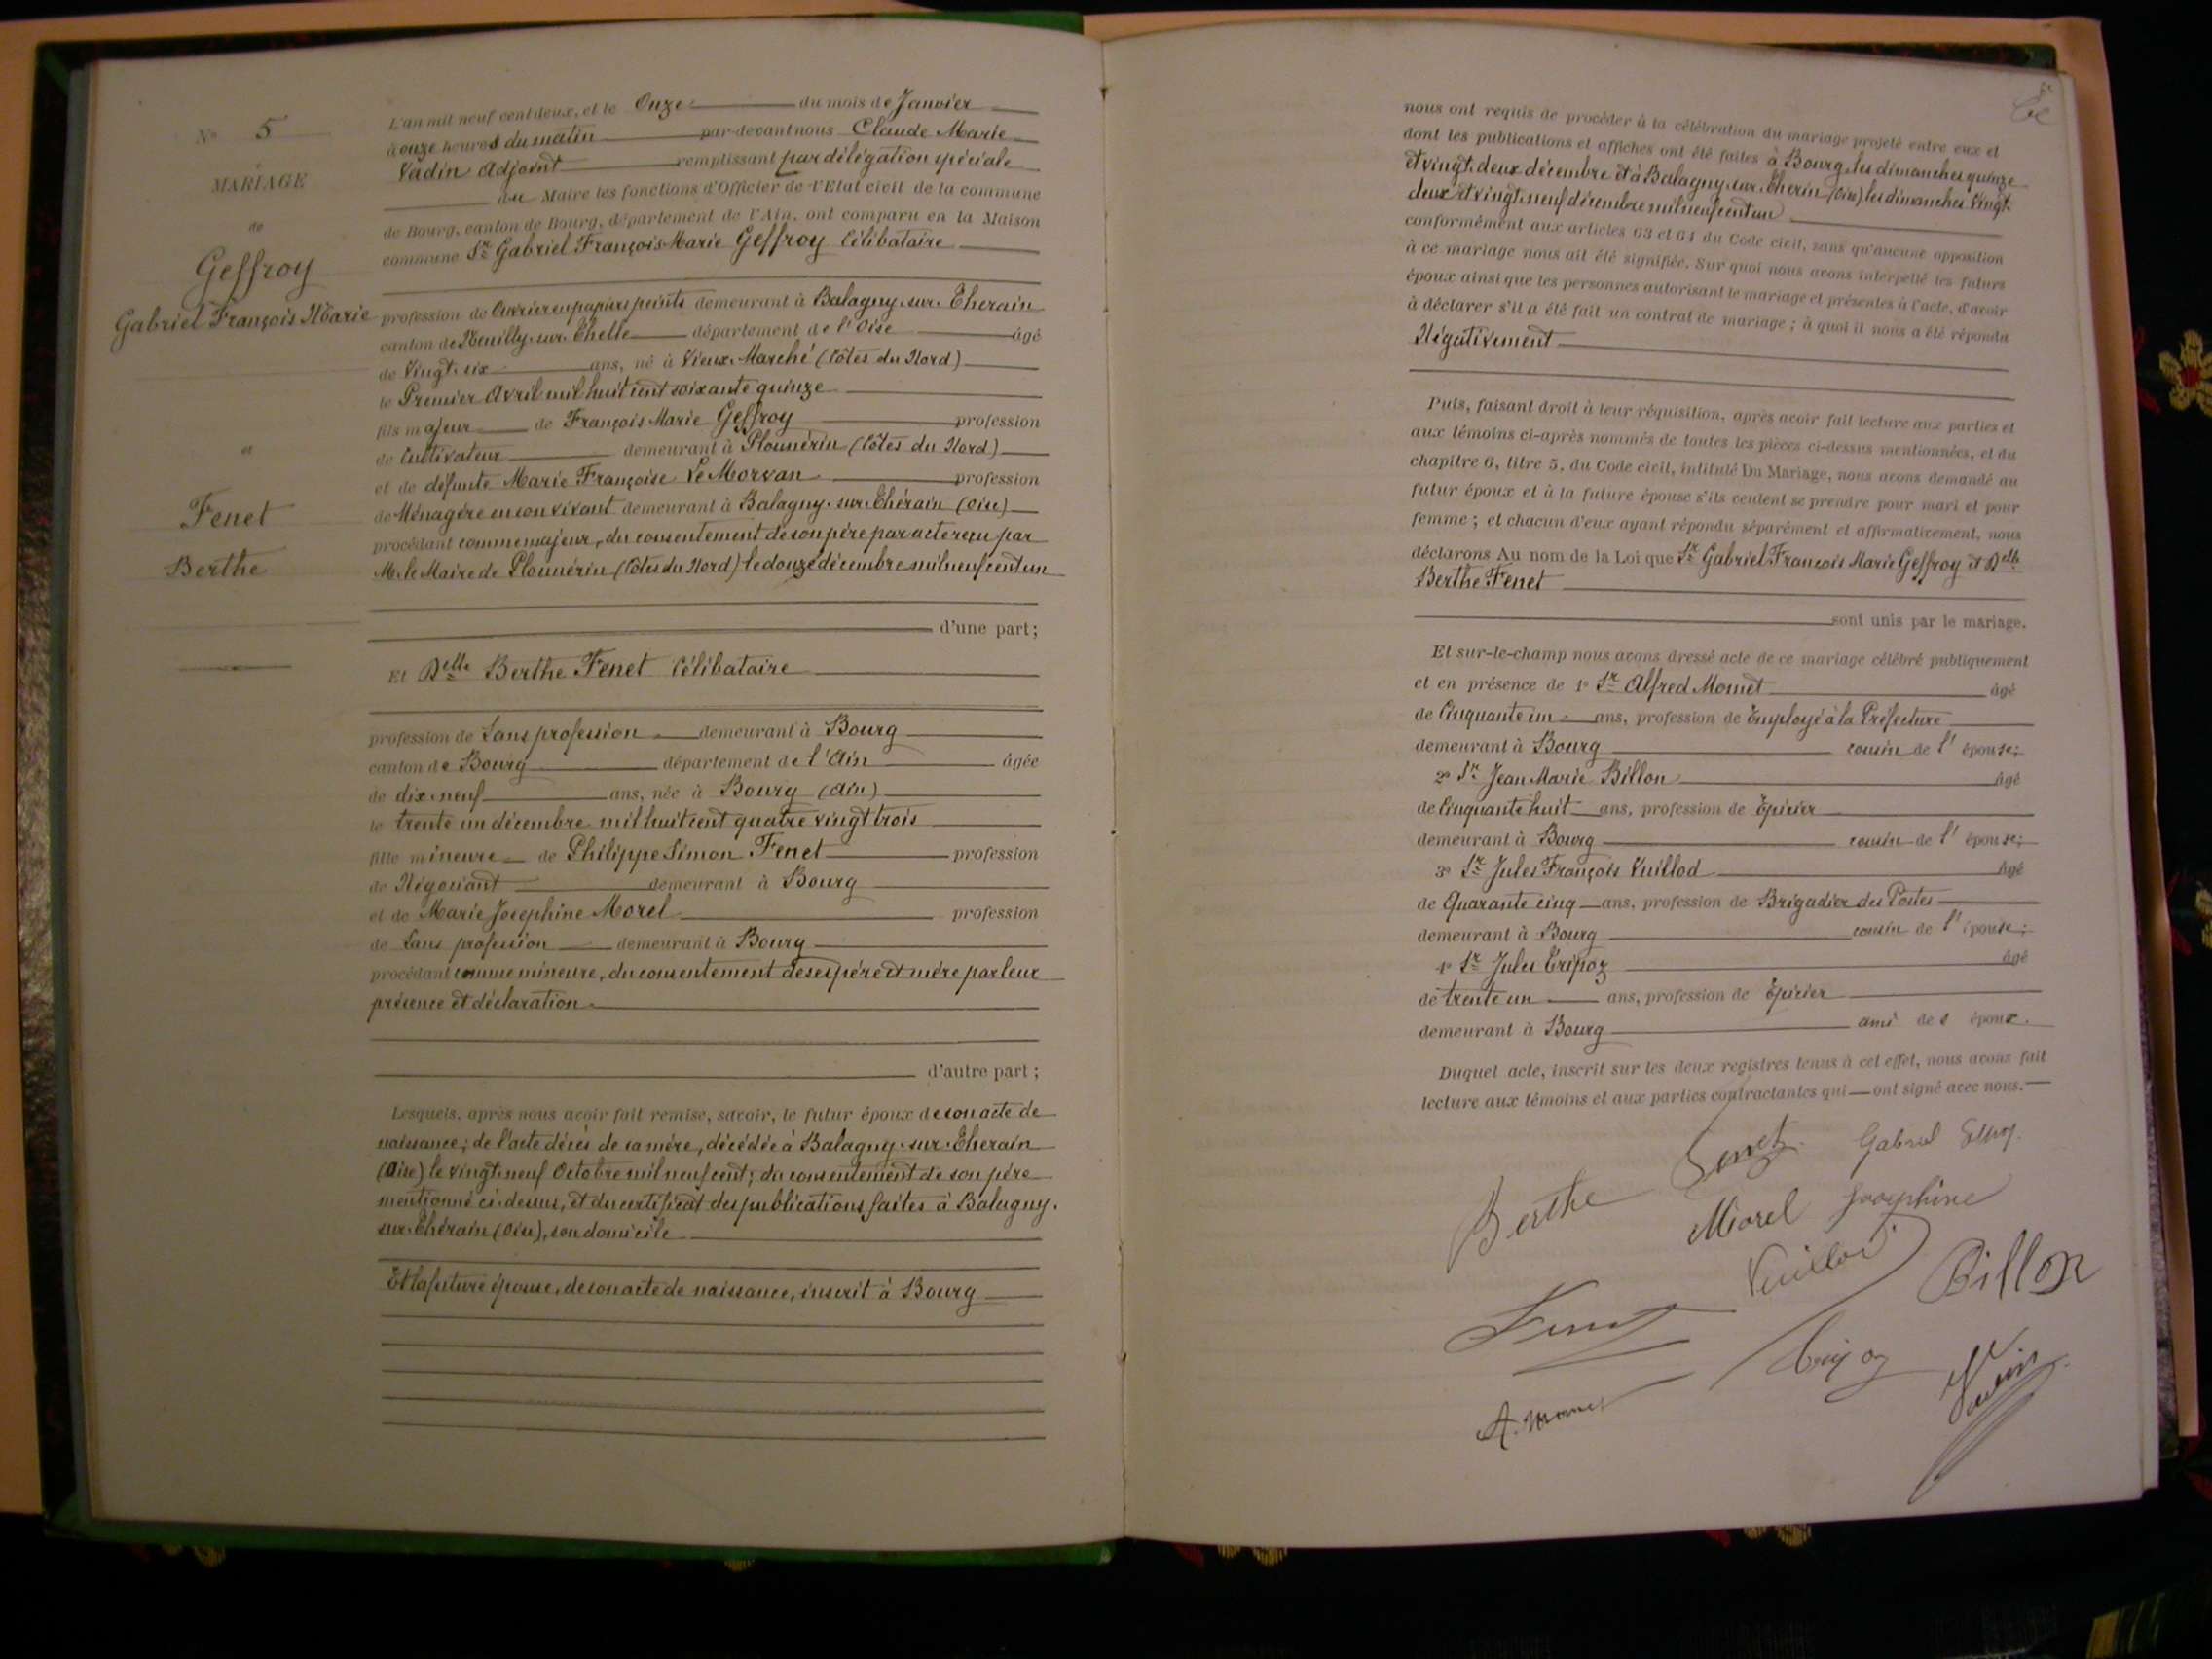 N° 5
MARIAGE
de
Geffroy
Gabriel François Marie
et
Fenet
Berthe
L'an mil neuf cent deux, et le Onze du mois de Janvier
à onze heures du matin par-devant nous Claude Marie
Vadin Adjoint remplissant par délégation spéciale
du Maire les fonctions d'Officier de l'Etat civil de la commune
de Bourg, canton de Bourg, département de l'Ain, ont comparu en la Maison
commune Sr Gabriel François Marie Geffroy Célibataire
profession de Ouvrier en papiers peints demeurant à Balagny-sur-Therain
canton de Neuilly-sur-Thelle département de l'Oise âgé
de Vingt-six ans, né à Vieux-Marché (Côtes du Nord)
le Premier Avril mil huit cent soixante quinze
fils majeur de François Marie Geffroy profession
de Cultivateur demeurant à Plounérin (Côtes du Nord)
et de défunte Marie Françoise Le Morvan profession
de Ménagère en son vivant demeurant à Balagny-sur-Thérain (Oise)
procédant comme majeur, du consentement de son père par acte reçu par
M. le Maire de Plounérin (Côtes du Nord) le douze décembre mil neuf cent un
d'une part;
Et Delle Berthe Fenet Célibataire
profession de Sans profession demeurant à Bourg
canton de Bourg département de l'Ain âgée
de dix-neuf ans, née à Bourg (Ain)
le trente un décembre mil huit cent quatre vingt trois
fille mineure de Philippe Simon Fenet profession
de Négociant demeurant à Bourg
et de Marie Josephine Morel profession
de Sans profession demeurant à Bourg
procédant comme mineure, du consentement de ses père et mère par leur
présence et déclaration
d'autre part;
Lesquels, après nous avoir fait remise, savoir, le futur époux de son acte de
naissance; de l'acte décès de sa mère, décédée à Balagny-sur-Therain
(Oise) le vingt-neuf Octobre mil neuf cent; du consentement de son père
mentionné ci-dessus, et du certificat des publications faites à Balagny-
sur-Thérain (Oise), son domicile
Et la future épouse, de son acte de naissance, inscrit à Bourg
nous ont requis de procéder à la célébration du mariage projeté entre eux et
dont les publications et affiches ont été faites à Bourg, les dimanches quinze
et vingt-deux décembre et à Balagny-sur-Therin (Oise) les dimanches Vingt-
deux et vingt-neuf décembre mil neuf cent un
conformément aux articles 63 et 64 du Code civil, sans qu'aucune opposition
à ce mariage nous ait été signifiée. Sur quoi nous avons interpellé les futurs
époux ainsi que les personnes autorisant le mariage et présentes à l'acte, d'avoir
à déclarer s'il a été fait un contrat de mariage; à quoi il nous a été répondu
Négativement
Puis, faisant droit à leur réquisition, après avoir fait lecture aux parties et
aux témoins ci-après nommés de toutes les pièces ci-dessus mentionnées, et du
chapitre 6, titre 5, du Code civil, intitulé Du Mariage, nous avons demandé au
futur époux et à la future épouse s'ils veulent se prendre pour mari et pour
femme; et chacun d'eux ayant répondu séparément et affirmativement, nous
déclarons Au nom de la Loi que Sr Gabriel François Marie Geffroy et Delle
Berthe Fenet
sont unis par le mariage.
Et sur-le-champ nous avons dressé acte de ce mariage célébré publiquement
et en présence de 1° Sr Alfred Momet âgé
de Cinquante un ans, profession de Employé à la Préfecture
demeurant à Bourg cousin de l'épouse;
2° Sr Jean Marie Billon âgé
de Cinquante huit ans, profession de Epicier
demeurant à Bourg cousin de l'épouse;
3° Sr Jules François Vuillod âgé
de Quarante cinq ans, profession de Brigadier des Postes
demeurant à Bourg cousin de l'épouse;
4° Sr Jules Tripoz âgé
de trente un ans, profession de Epicier
demeurant à Bourg ami des époux.
Duquel acte, inscrit sur les deux registres tenus à cet effet, nous avons fait
lecture aux témoins et aux parties contractantes qui ont signé avec nous.
Berthe Fenet Gabriel Geffroy
Morel Josephine
Vuillod Billon
Fenet
Tripoz Vadin